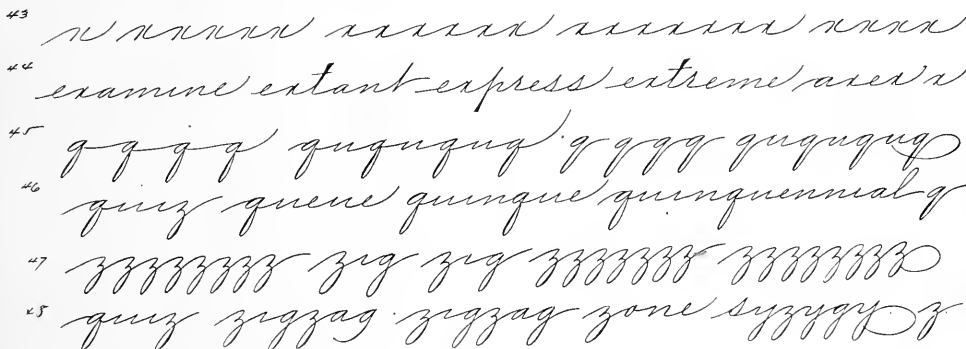 43 x xxxxx xxxxxx xxxxxxx xxxx
44 examine extant express extreme axer's
45 q q q q quququq q q q q quququq
46 quiz queue quinque quinquennial q
47 zzzzzzzz zig zig zzzzzzz zzzzzzzz
48 quiz zigzag zigzag zone syzygy z